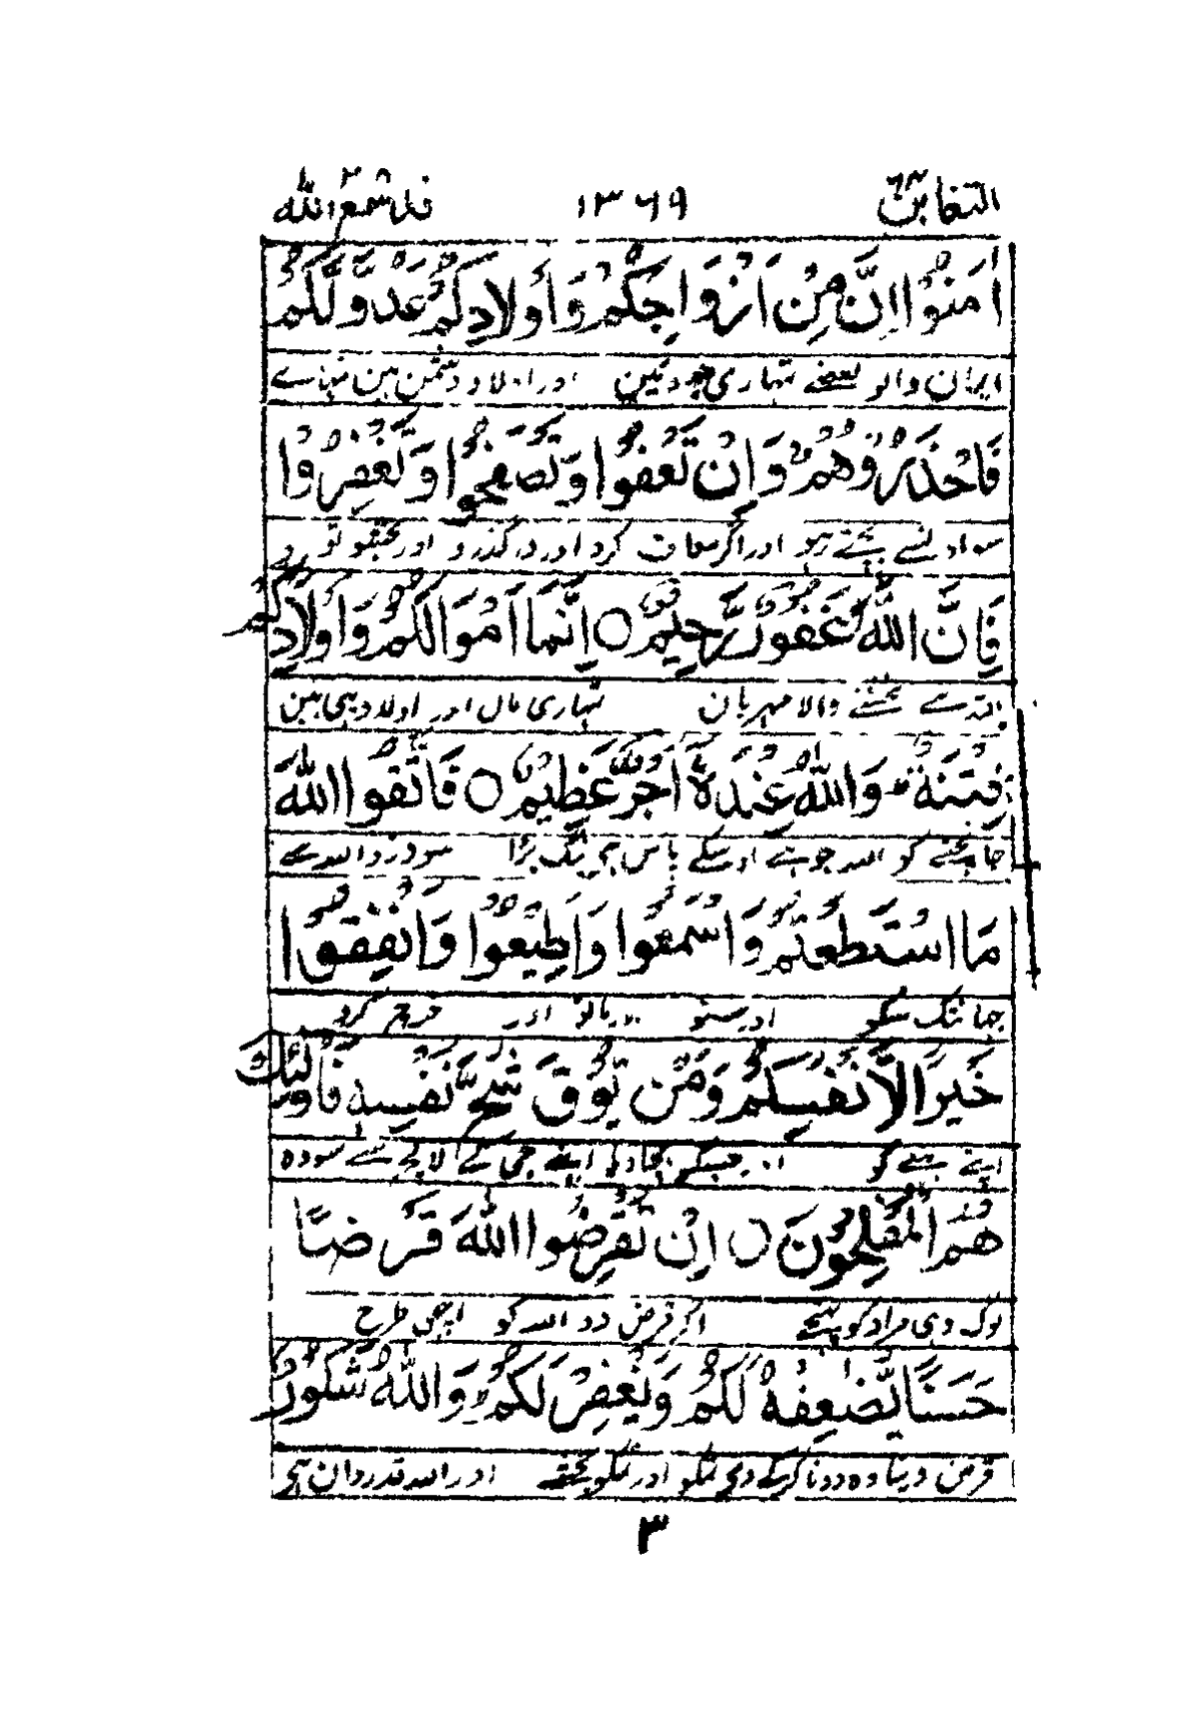 التغابن ٦٤ ١٣٦٩ قد سمع الله ٢٨
اٰمَنُوْٓا اِنَّ مِنْ اَزْوَاجِكُمْ وَاَوْلَادِكُمْ عَدُوًّا لَّكُمْ
ایمان والو بعضے تمہاری جوروئین اور اولاد دشمن ہین تمہارے
فَاحْذَرُوْهُمْ ۚ وَاِنْ تَعْفُوْا وَتَصْفَحُوْا وَتَغْفِرُوْا
سو اونسے بچتے رہو اور اگر معاف کرو اور درگذرو اور بخشو تو
فَاِنَّ اللّٰهَ غَفُوْرٌ رَّحِيْمٌ ○ اِنَّمَآ اَمْوَالُكُمْ وَاَوْلَادُكُمْ
اللہ ہے بخشنے والا مہربان تمہاری مال اور اولاد یہی ہین
فِتْنَةٌ ؕ وَاللّٰهُ عِنْدَهٗٓ اَجْرٌ عَظِيْمٌ ○ فَاتَّقُوا اللّٰهَ
جانچنے کو اللہ جو ہے اوسکے پاس ہی نیگ بڑا سو ڈرو اللہ سے
مَا اسْتَطَعْتُمْ وَاسْمَعُوْا وَاَطِيْعُوْا وَاَنْفِقُوْا
جہانتک سکو اور سنو اور مانو اور خرچ کرو
خَيْرًا لِّاَنْفُسِكُمْ ؕ وَمَنْ يُّوْقَ شُحَّ نَفْسِهٖ فَاُولٰٓئِكَ
اپنے بھلے کو اور جسکو بچا دیا اپنے جی کے لالچ سے سو وہ
هُمُ الْمُفْلِحُوْنَ ○ اِنْ تُقْرِضُوا اللّٰهَ قَرْضًا
لوگ وہی مراد کو پہنچے اگر قرض دو اللہ کو اچھی طرح
حَسَنًا يُّضٰعِفْهُ لَكُمْ وَيَغْفِرْ لَكُمْ ؕ وَاللّٰهُ شَكُوْرٌ
قرض دینا وہ دونا کرکے دی تمکو اور تمکو بخشے اور اللہ قدردان ہی
٣